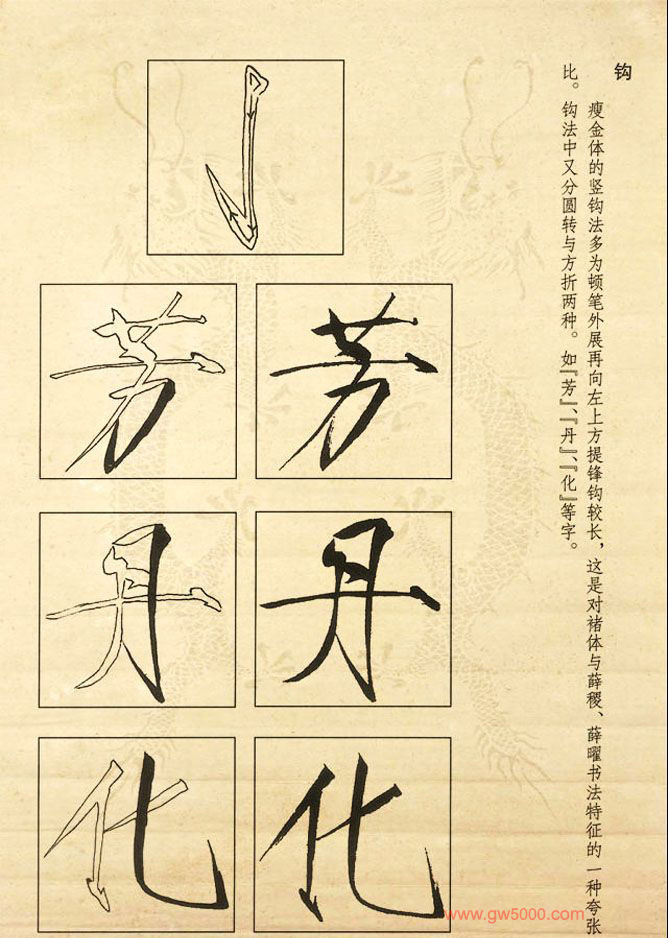 钩
瘦金体的竖钩法多为顿笔外展再向左上方提锋钩较长，这是对褚体与薛稷、薛曜书法特征的一种夸张
比。钩法中又分圆转与方折两种。如『芳』、『丹』、『化』等字。
芳 芳
丹 丹
化 化
www.gw5000.com